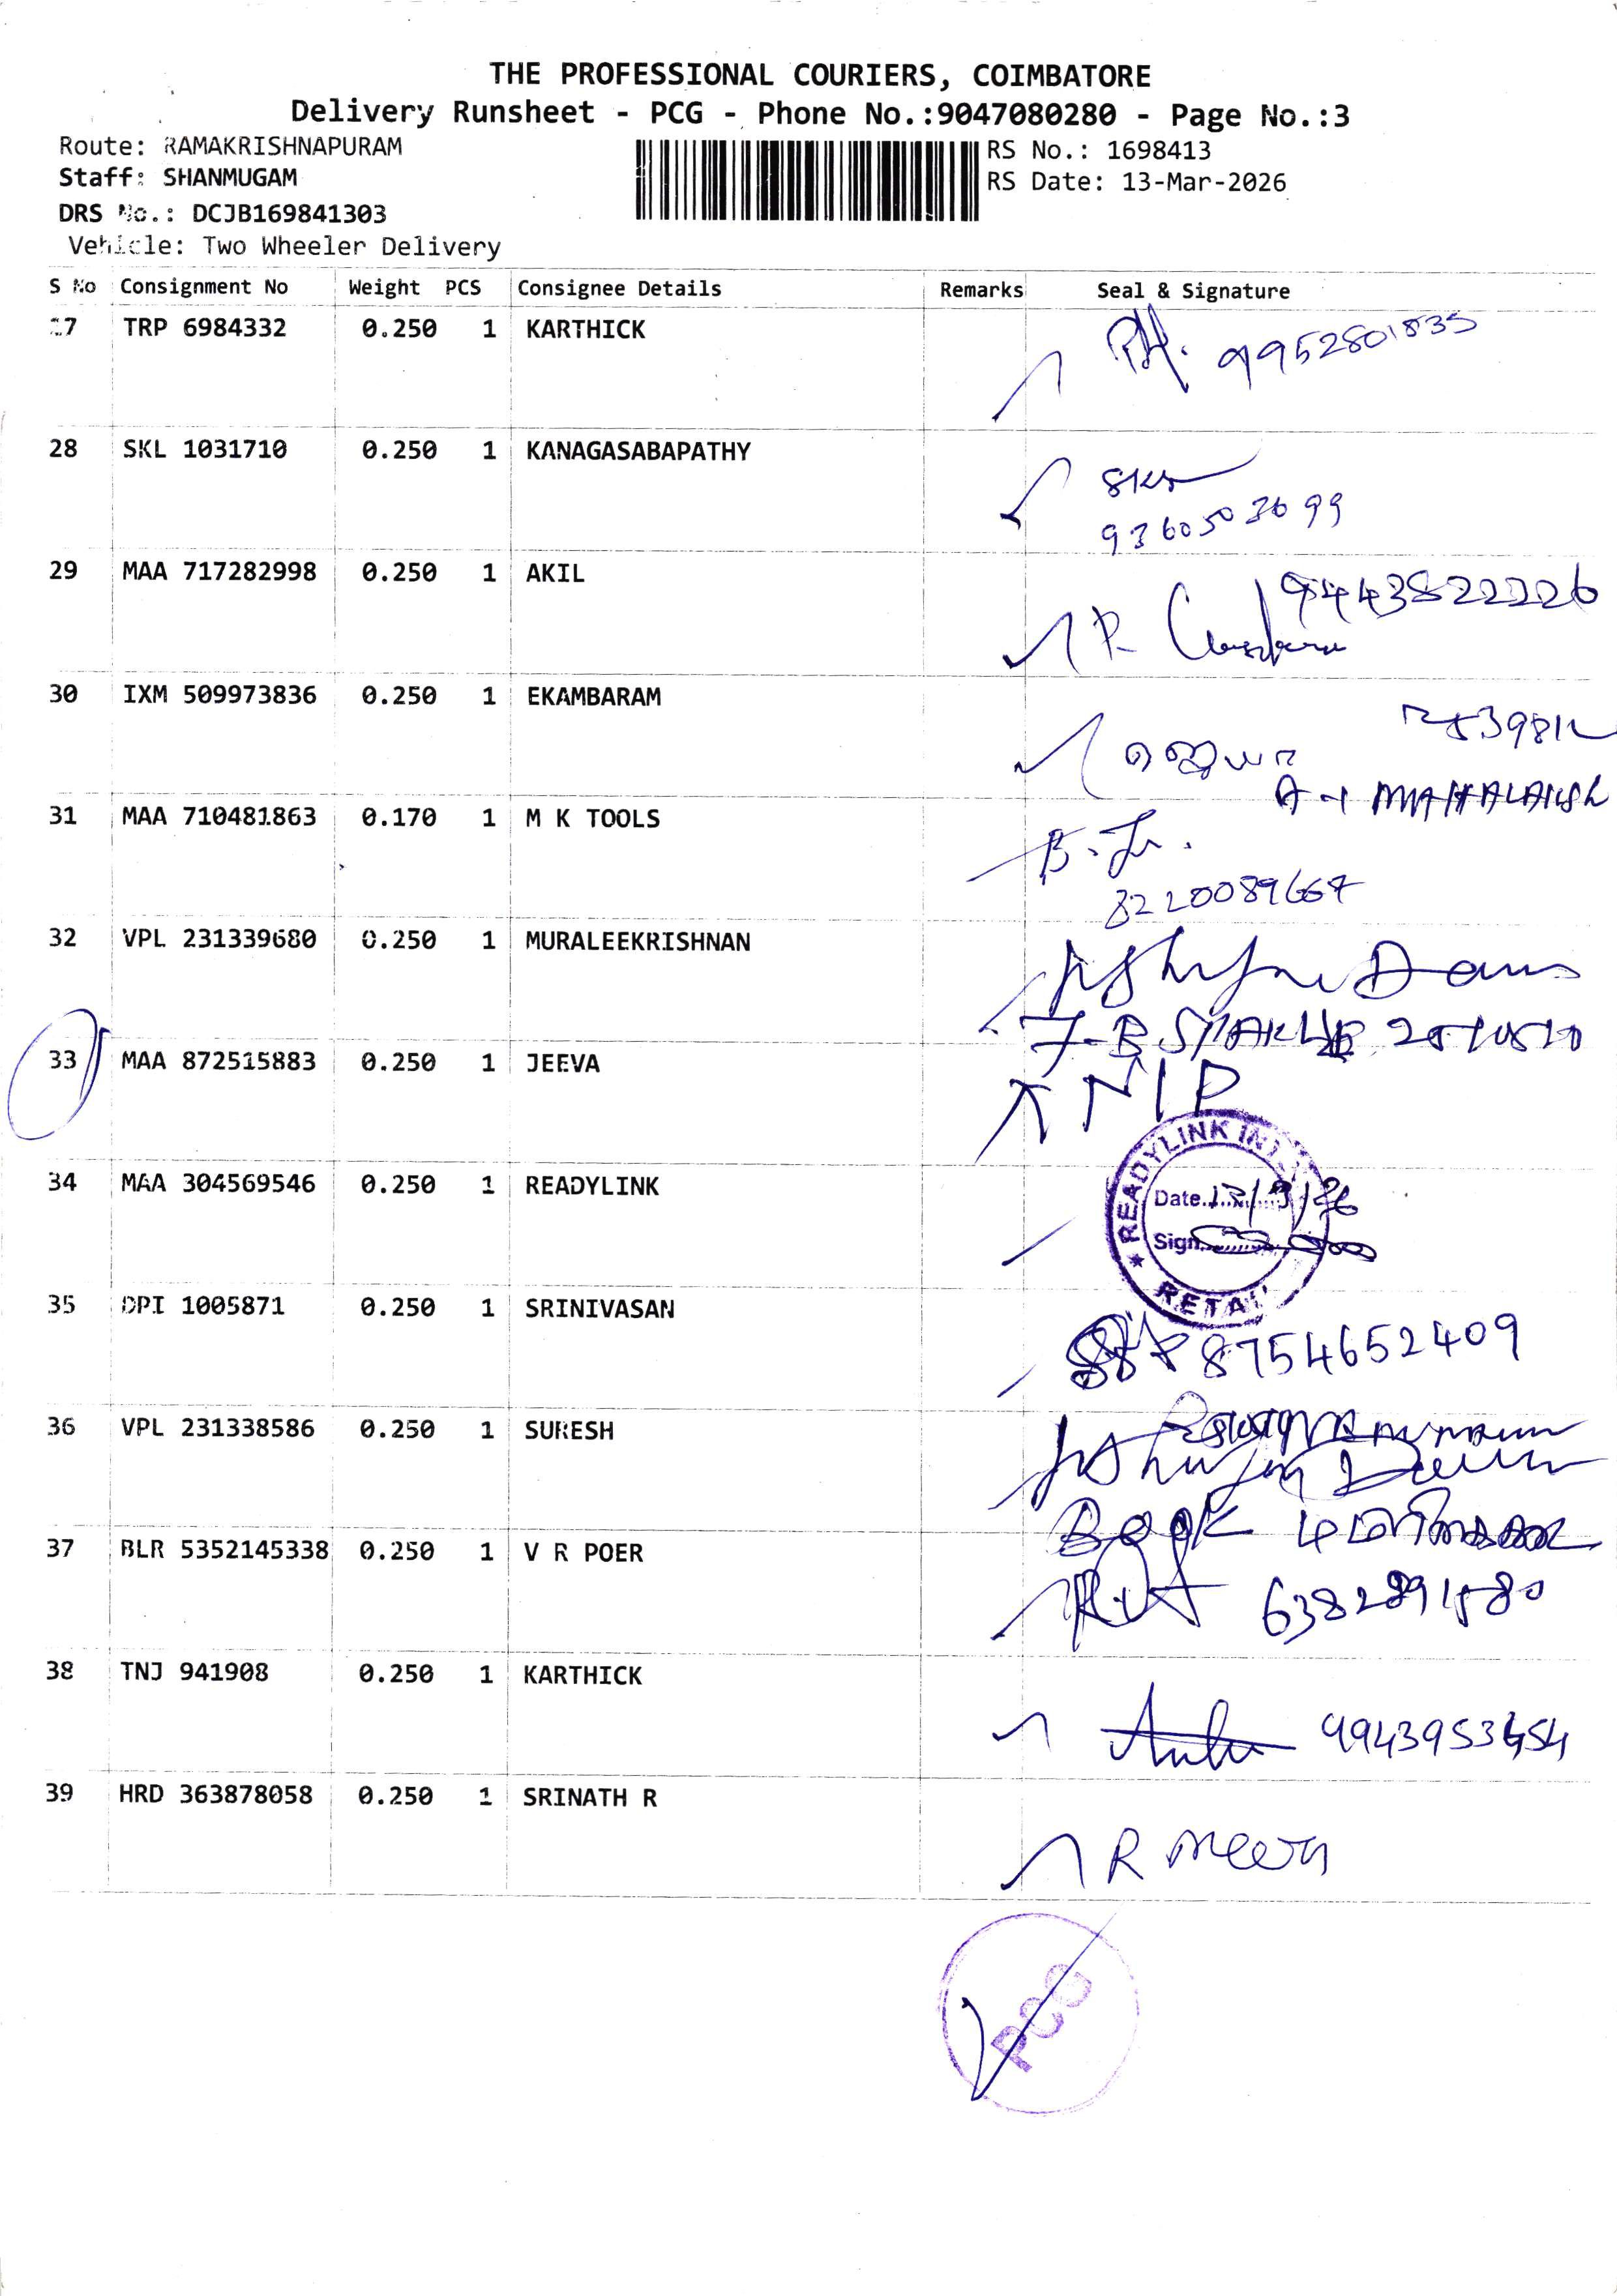 THE PROFESSIONAL COURIERS, COIMBATORE
Delivery Runsheet - PCG - Phone No.:9047080280 - Page No.:3
Route: RAMAKRISHNAPURAM
Staff: SHANMUGAM
DRS No.: DCJB169841303
Vehicle: Two Wheeler Delivery
RS No.: 1698413
RS Date: 13-Mar-2026
S No Consignment No Weight PCS Consignee Details Remarks Seal & Signature
27 TRP 6984332 0.250 1 KARTHICK
9952801835
28 SKL 1031710 0.250 1 KANAGASABAPATHY
9360503699
29 MAA 717282998 0.250 1 AKIL
9443822226
30 IXM 509973836 0.250 1 EKAMBARAM
31 MAA 710481863 0.170 1 M K TOOLS
8220089667
32 VPL 231339680 0.250 1 MURALEEKRISHNAN
33 MAA 872515883 0.250 1 JEEVA
NIP
34 MAA 304569546 0.250 1 READYLINK
READYLINK
Date 13/3/26
Sign
RETAI
35 DPI 1005871 0.250 1 SRINIVASAN
8754652409
36 VPL 231338586 0.250 1 SURESH
37 BLR 5352145338 0.250 1 V R POER
38 TNJ 941908 0.250 1 KARTHICK
39 HRD 363878058 0.250 1 SRINATH R
R Meera